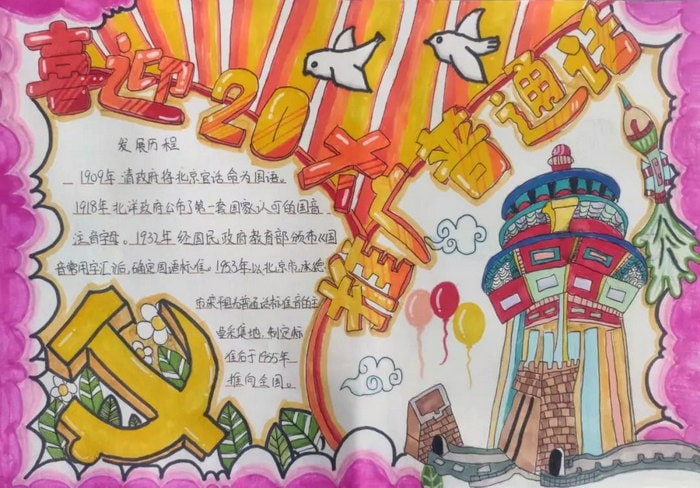 喜迎20大
推广普通话
发展历程
1909年 清政府将北京官话命为国语。
1918年 北洋政府公布了第一套国家认可的国音
注音字母。1932年 经国民政府教育部颁布《国
音常用字汇》后,确定国语标准。1953年以北京市、承德
市滦平县为普通话标准音的主
要采集地,制定标
准后于1955年
推向全国。